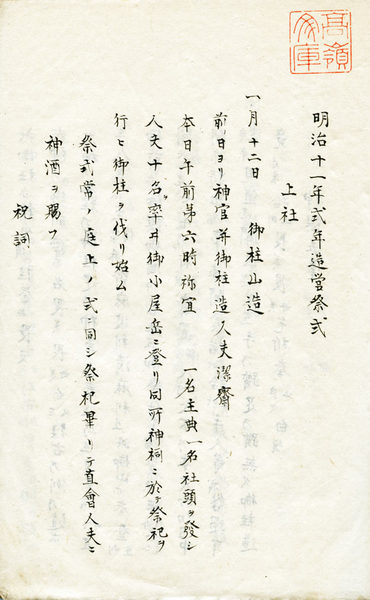 高嶺文庫
明治十一年式年造営祭式
上社
一月十二日 御柱山造
前一日ヨリ神官并御柱造人夫潔齋
本日午前第六時祢宜一名主典一名社頭ヲ發シ
人夫十名ヲ率ヰ御小屋岳ニ登リ同所神祠ニ於テ祭祀ヲ
行ヒ御柱ヲ伐リ始ム
祭式常ノ庭上ノ式ニ同シ祭祀畢リテ直會人夫ニ
神酒ヲ賜フ
祝詞